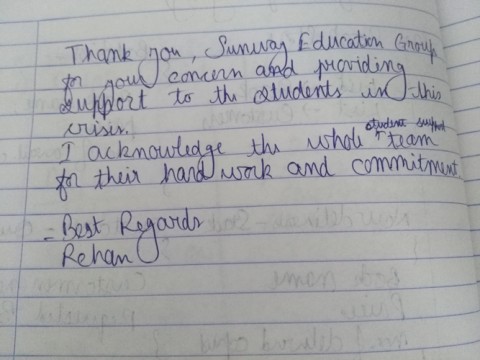 Thank you, Sunway Education Group
for your concern and providing
support to the students in this
crisis.
I acknowledge the whole student support team
for their hard work and commitment
- Best Regards
Rehan